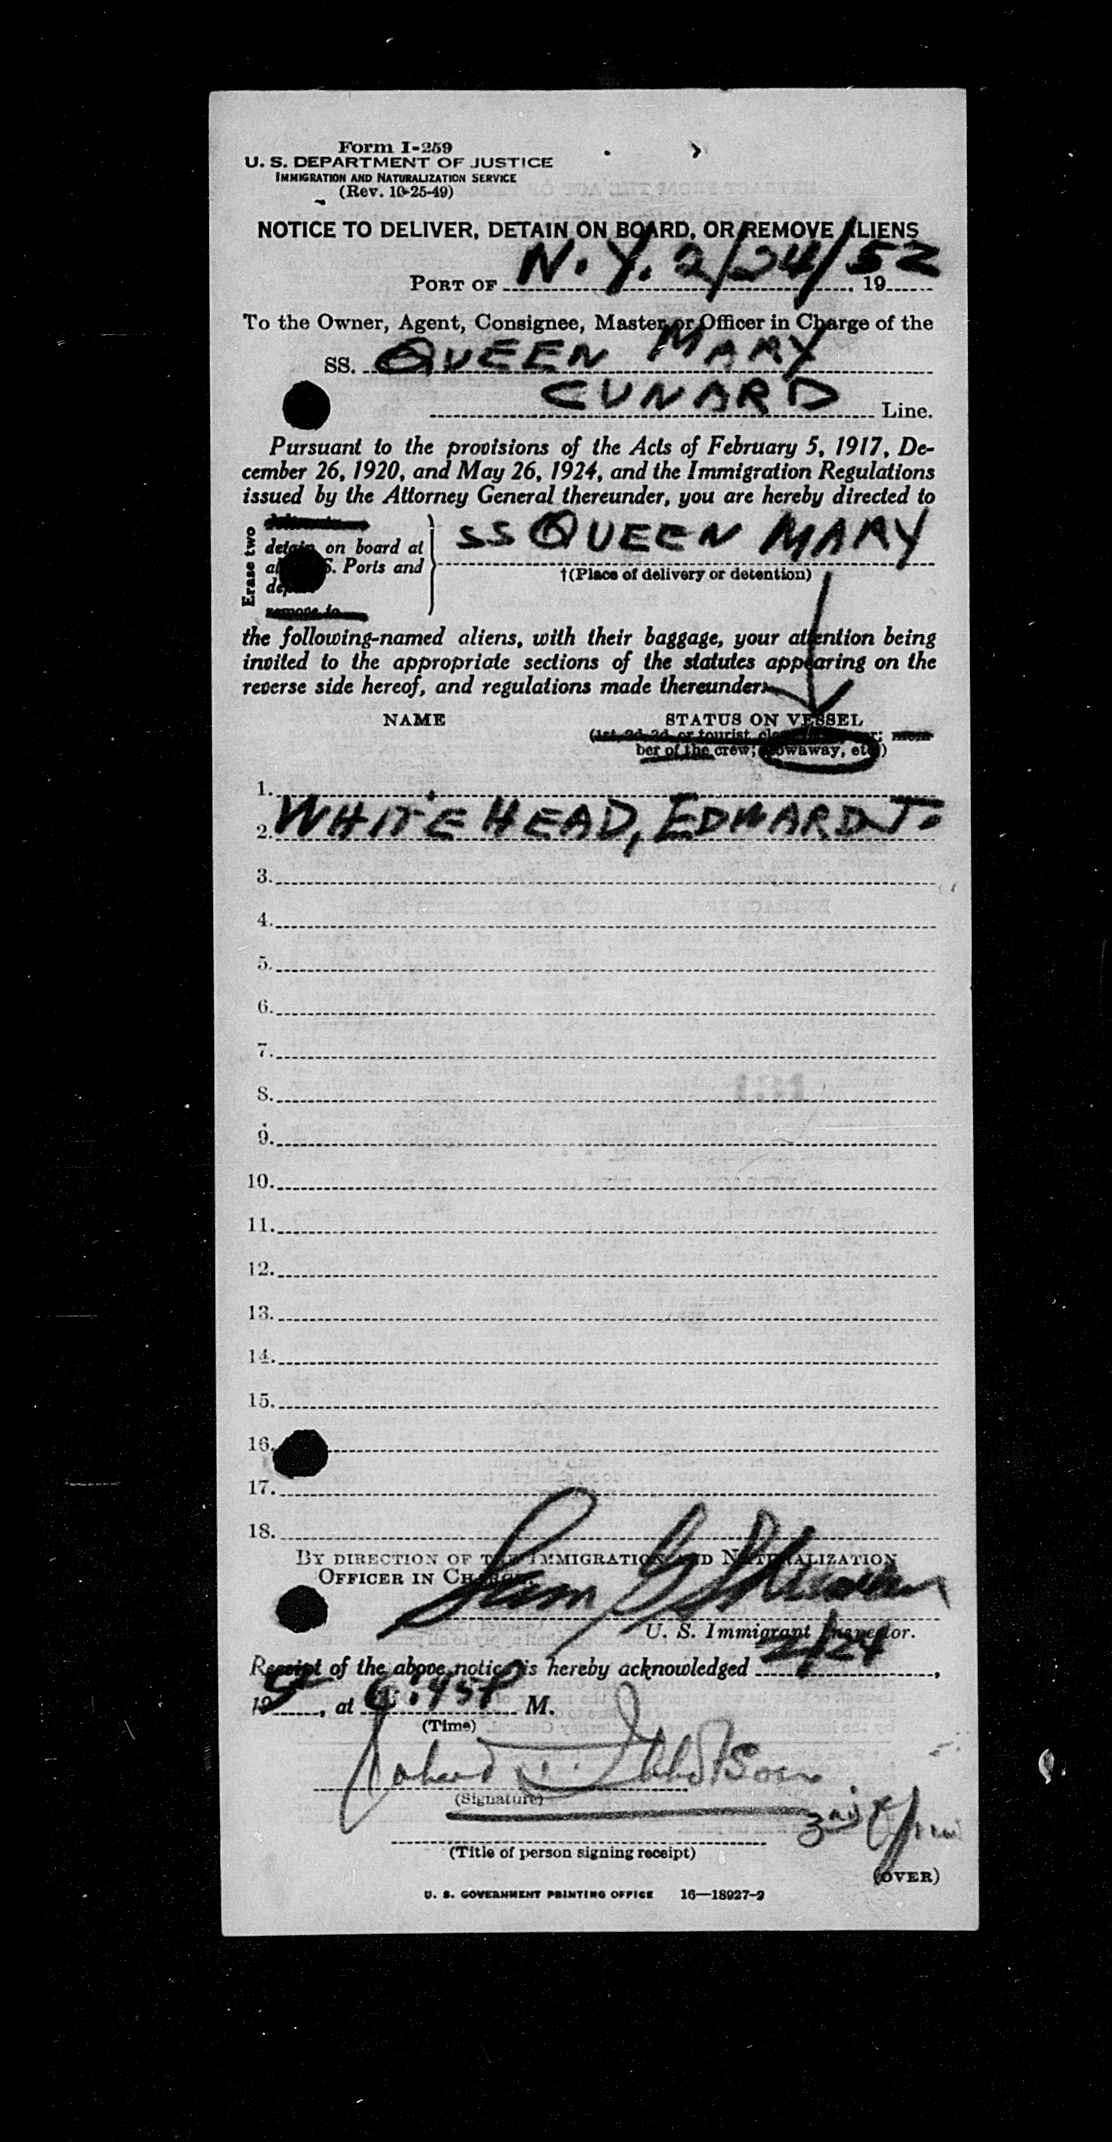 Form I-259
U. S. DEPARTMENT OF JUSTICE
IMMIGRATION AND NATURALIZATION SERVICE
(Rev. 10-25-49)
NOTICE TO DELIVER, DETAIN ON BOARD, OR REMOVE ALIENS
PORT OF N.Y. 2/24/52, 19
To the Owner, Agent, Consignee, Master or Officer in Charge of the
SS. QUEEN MARY
CUNARD Line.
Pursuant to the provisions of the Acts of February 5, 1917, De-
cember 26, 1920, and May 26, 1924, and the Immigration Regulations
issued by the Attorney General thereunder, you are hereby directed to
Erase two
detain on board at
S. Ports and
SS QUEEN MARY
†(Place of delivery or detention)
remove to
the following-named aliens, with their baggage, your attention being
invited to the appropriate sections of the statutes appearing on the
reverse side hereof, and regulations made thereunder:
NAME STATUS ON VESSEL
(1st, 2d, 3d, or tourist class
ber of the crew; stowaway, etc.)
1.
2. WHITEHEAD, EDWARD J.
3.
4.
5.
6.
7.
8.
9.
10.
11.
12.
13.
14.
15.
16.
17.
18.
BY DIRECTION OF THE IMMIGRATION AND NATURALIZATION
OFFICER IN CHARGE.
Sam G
U. S. Immigrant Inspector.
Receipt of the above notice is hereby acknowledged 2/24,
19, at 6:45P M.
(Time)
(Signature)
(Title of person signing receipt)
(OVER)
U. S. GOVERNMENT PRINTING OFFICE 16—18927-2